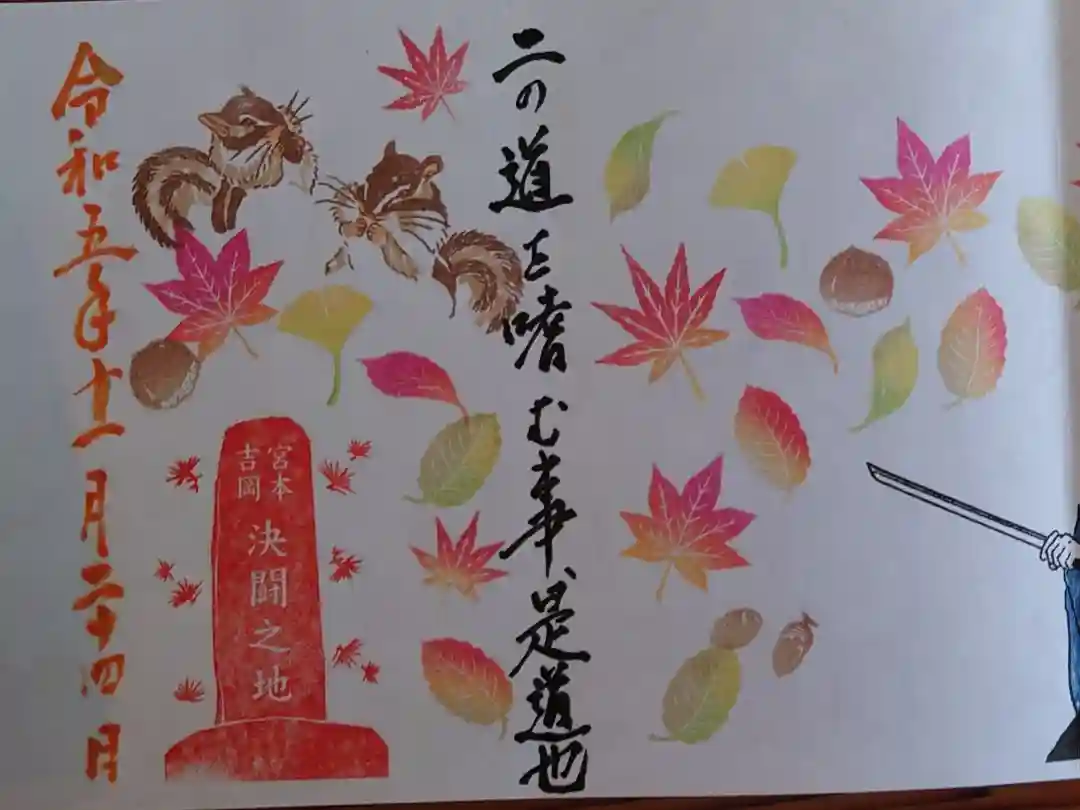 二の道を嗜む事、是道也
宮本
吉岡
決闘之地
令和五年十一月二十四日